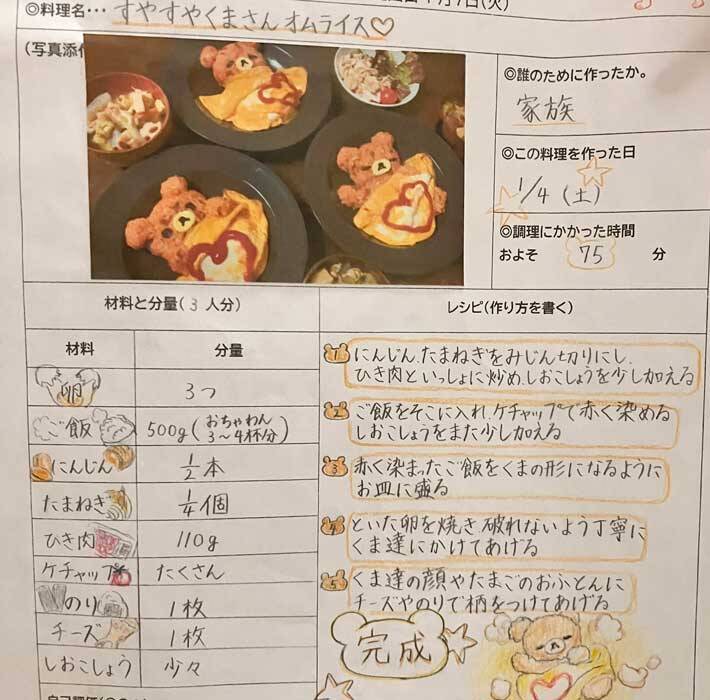 ◎料理名・・・ すやすやくまさんオムライス♡
月7日(火)
(写真添付
◎誰のために作ったか。
家族
◎この料理を作った日
1/4 (土)
◎調理にかかった時間
およそ 75 分
材料と分量(3人分)
材料 分量
卵 3つ
ご飯 500g(おちゃわん3〜4杯分)
にんじん 1/2本
たまねぎ 1/4個
ひき肉 110g
ケチャップ たくさん
のり 1枚
チーズ 1枚
しおこしょう 少々
レシピ(作り方を書く)
1 にんじん、たまねぎをみじん切りにし、
ひき肉といっしょに炒め、しおこしょうを少し加える
2 ご飯をそこに入れ、ケチャップで赤く染める
しおこしょうをまた少し加える
3 赤く染まったご飯をくまの形になるように
お皿に盛る
4 といた卵を焼き破れないよう丁寧に
くま達にかけてあげる
5 くま達の顔やたまごのおふとんに
チーズやのりで柄をつけてあげる
完成